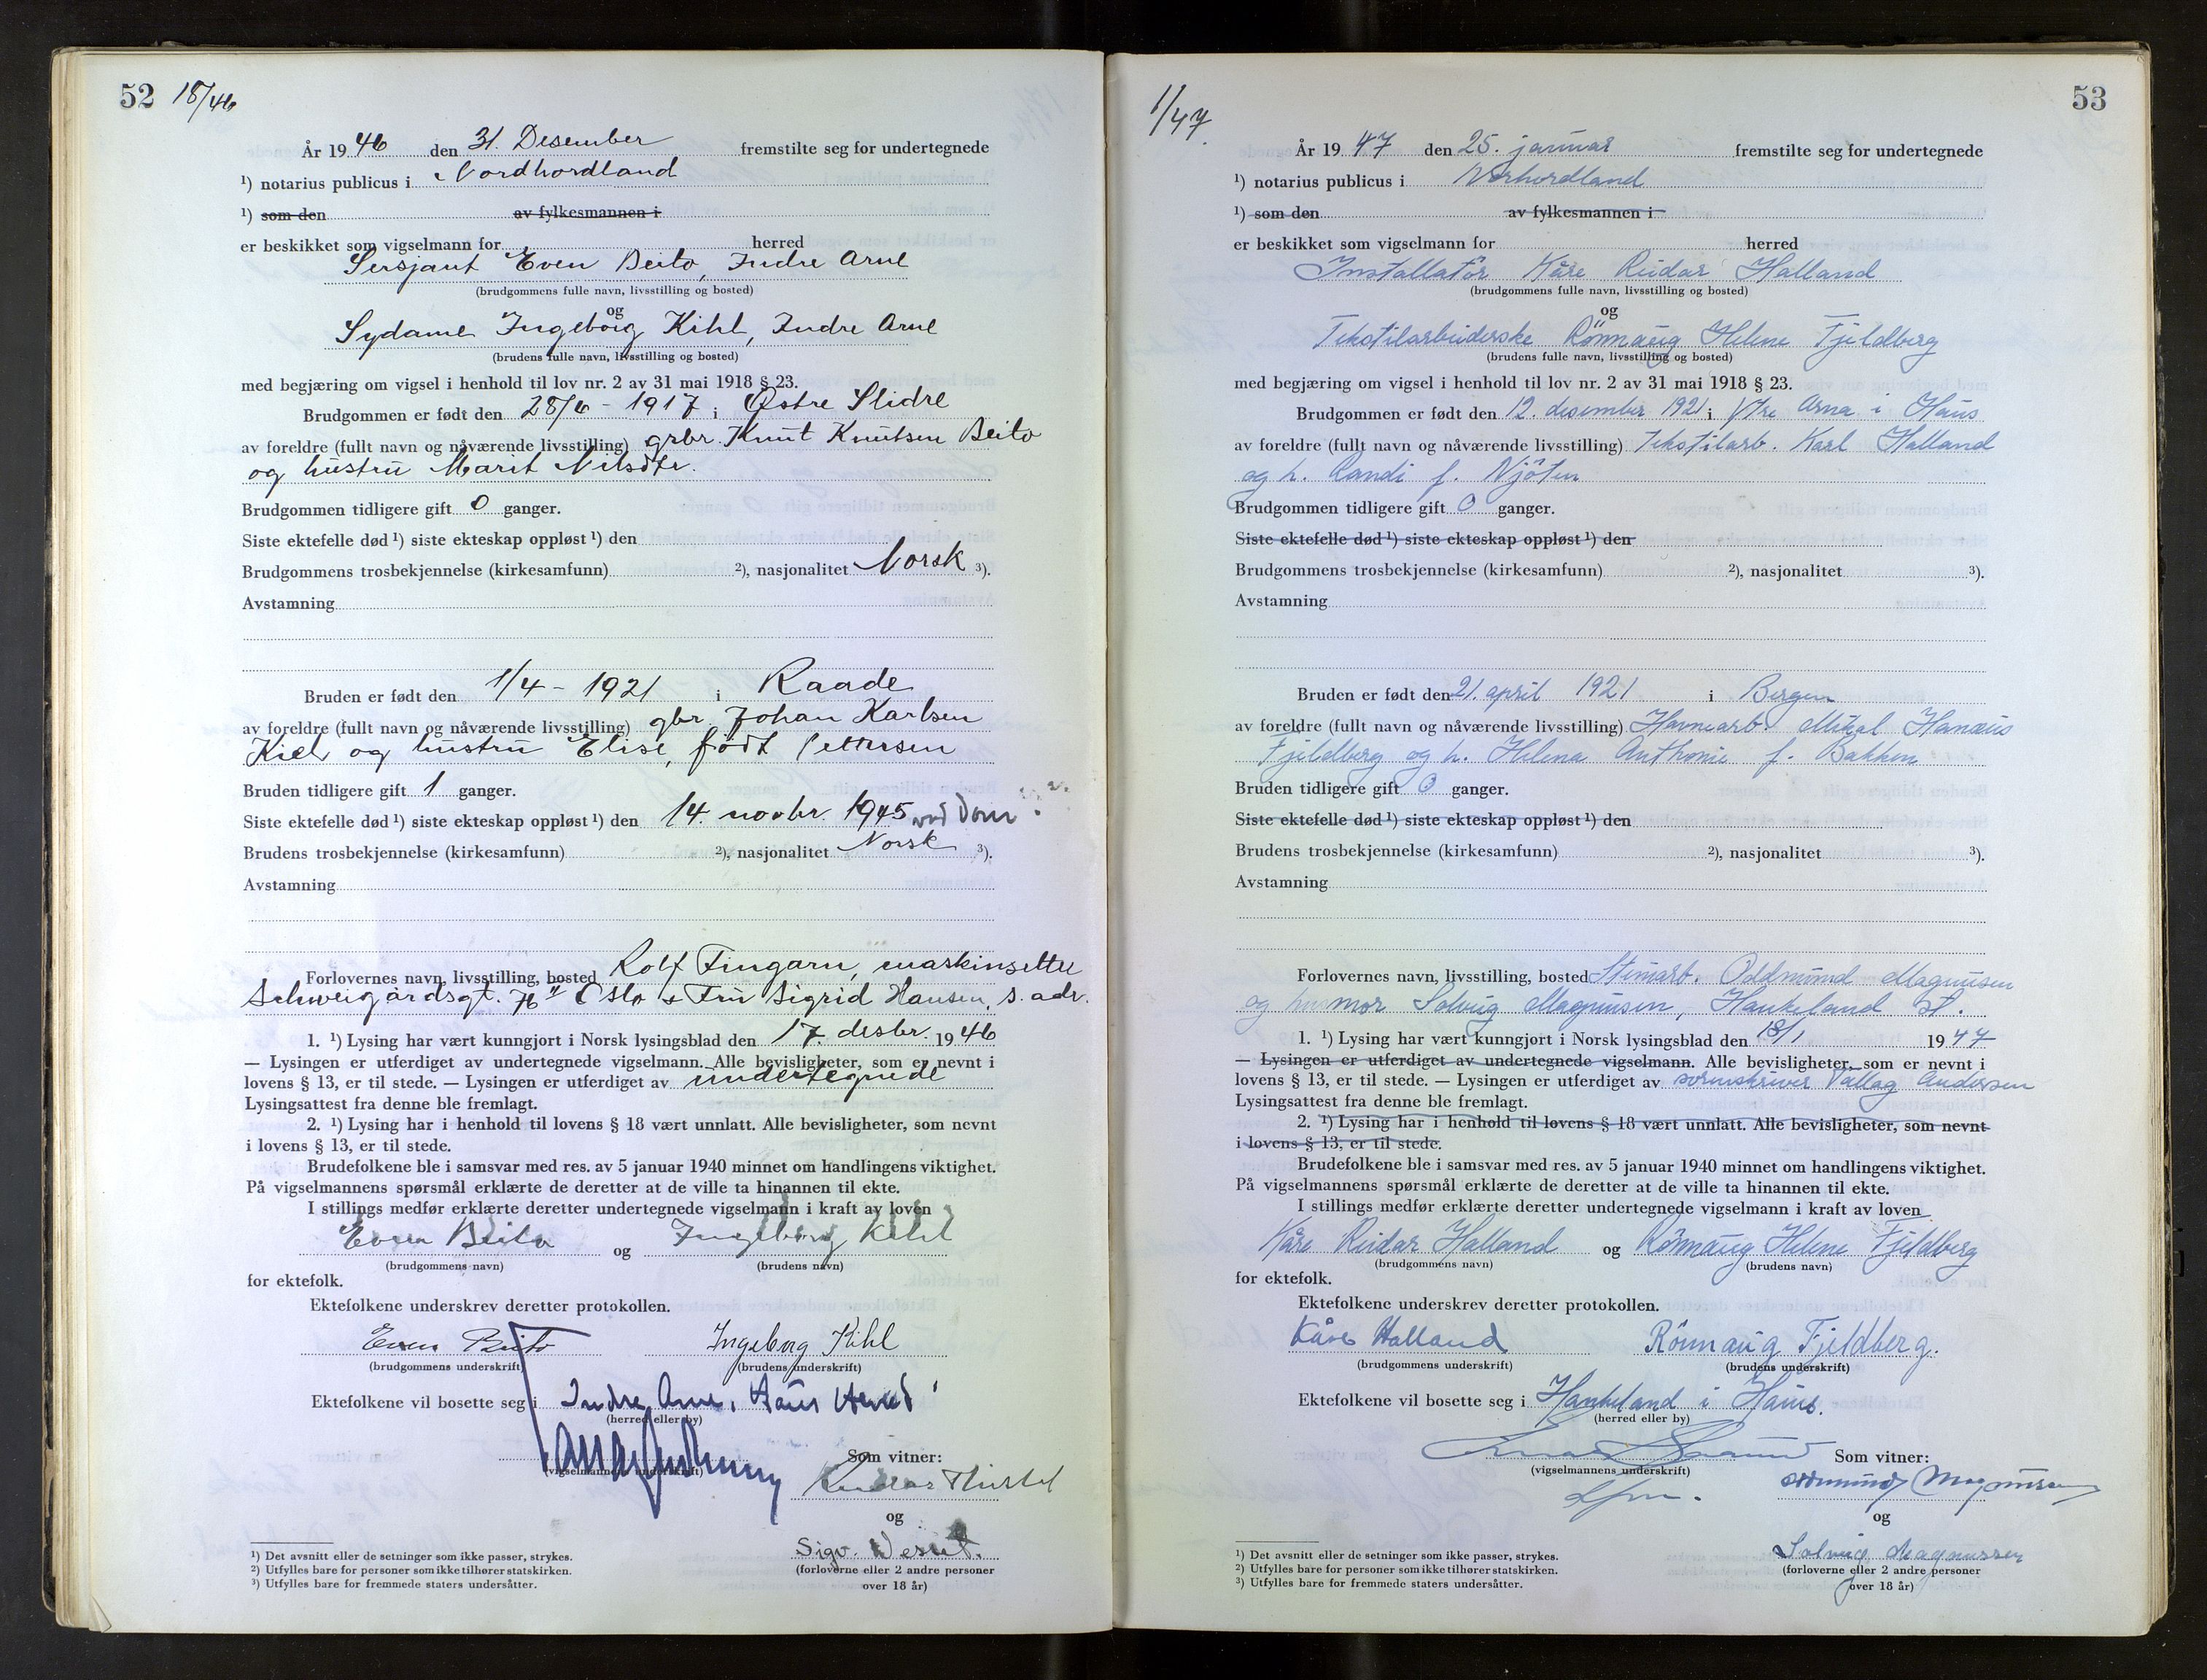 52 18/46
År 19 46 den 31. Desember fremstilte seg for undertegnede
¹) notarius publicus i Nordhordland
¹) som den av fylkesmannen i
er beskikket som vigselmann for herred
Sersjant Even Beito, Indre Arne
(brudgommens fulle navn, livsstilling og bosted)
og
Sydame Ingeborg Kihl, Indre Arne
(brudens fulle navn, livsstilling og bosted)
med begjæring om vigsel i henhold til lov nr. 2 av 31 mai 1918 § 23.
Brudgommen er født den 28/6 - 1917 i Østre Slidre
av foreldre (fullt navn og nåværende livsstilling) grbr. Knut Knutsen Beito
og hustru Marit Nilsdtr.
Brudgommen tidligere gift 0 ganger.
Siste ektefelle død ¹) siste ekteskap oppløst ¹) den
Brudgommens trosbekjennelse (kirkesamfunn) ²), nasjonalitet Norsk ³).
Avstamning
Bruden er født den 1/4 - 1921 i Raade
av foreldre (fullt navn og nåværende livsstilling) gbr. Johan Karlsen
Kiel og hustru Elise, født Pettersen
Bruden tidligere gift 1 ganger.
Siste ektefelle død ¹) siste ekteskap oppløst ¹) den 14. novbr. 1945 ved Dom
Brudens trosbekjennelse (kirkesamfunn) ²), nasjonalitet Norsk ³).
Avstamning
Forlovernes navn, livsstilling, bosted Rolf Fingarn, maskinsetter
Schweigårdsgt. 76 II Oslo + Fru Sigrid Hansen, s. adr.
1. ¹) Lysing har vært kunngjort i Norsk lysingsblad den 17. desbr. 19 46
— Lysingen er utferdiget av undertegnede vigselmann. Alle bevisligheter, som er nevnt i
lovens § 13, er til stede. — Lysingen er utferdiget av undertegnede
Lysingsattest fra denne ble fremlagt.
2. ¹) Lysing har i henhold til lovens § 18 vært unnlatt. Alle bevisligheter, som nevnt
i lovens § 13, er til stede.
Brudefolkene ble i samsvar med res. av 5 januar 1940 minnet om handlingens viktighet.
På vigselmannens spørsmål erklærte de deretter at de ville ta hinannen til ekte.
I stillings medfør erklærte deretter undertegnede vigselmann i kraft av loven
Even Beito og Ingeborg Kihl
(brudgommens navn) (brudens navn)
for ektefolk.
Ektefolkene underskrev deretter protokollen.
Even Beito Ingeborg Kihl
(brudgommens underskrift) (brudens underskrift)
Ektefolkene vil bosette seg i Indre Arne, Haus Herred
(herred eller by)
Som vitner:
(vigselmannens underskrift)
og
Sigv.
(forloverne eller 2 andre personer
over 18 år)
¹) Det avsnitt eller de setninger som ikke passer, strykes.
²) Utfylles bare for personer som ikke tilhører statskirken.
³) Utfylles bare for fremmede staters undersåtter.
1/47. 53
År 19 47 den 25. januar fremstilte seg for undertegnede
¹) notarius publicus i Norhordland
¹) som den av fylkesmannen i
er beskikket som vigselmann for herred
Installatör Kåre Reidar Halland
(brudgommens fulle navn, livsstilling og bosted)
og
Tekstilarbeiderske Rönnaug Helene Fjeldberg
(brudens fulle navn, livsstilling og bosted)
med begjæring om vigsel i henhold til lov nr. 2 av 31 mai 1918 § 23.
Brudgommen er født den 12. desember 1921 i Ytre Arna i Haus
av foreldre (fullt navn og nåværende livsstilling) Tekstilarb. Karl Halland
og h. Randi f. Njöten
Brudgommen tidligere gift 0 ganger.
Siste ektefelle død ¹) siste ekteskap oppløst ¹) den
Brudgommens trosbekjennelse (kirkesamfunn) ²), nasjonalitet ³).
Avstamning
Bruden er født den 21. april 1921 i Bergen
av foreldre (fullt navn og nåværende livsstilling) Havnearb. Mikal
Fjeldberg og h. Helena Anthonie f. Bakken
Bruden tidligere gift 0 ganger.
Siste ektefelle død ¹) siste ekteskap oppløst ¹) den
Brudens trosbekjennelse (kirkesamfunn) ²), nasjonalitet ³).
Avstamning
Forlovernes navn, livsstilling, bosted Oddmund Magnusen
og husmor Solveig Magnusen, Haukeland St.
1. ¹) Lysing har vært kunngjort i Norsk lysingsblad den 18/1 19 47
— Lysingen er utferdiget av undertegnede vigselmann. Alle bevisligheter, som er nevnt i
lovens § 13, er til stede. — Lysingen er utferdiget av sorenskriver Andersen
Lysingsattest fra denne ble fremlagt.
2. ¹) Lysing har i henhold til lovens § 18 vært unnlatt. Alle bevisligheter, som nevnt
i lovens § 13, er til stede.
Brudefolkene ble i samsvar med res. av 5 januar 1940 minnet om handlingens viktighet.
På vigselmannens spørsmål erklærte de deretter at de ville ta hinannen til ekte.
I stillings medfør erklærte deretter undertegnede vigselmann i kraft av loven
Kåre Reidar Halland og Rönnaug Helene Fjeldberg
(brudgommens navn) (brudens navn)
for ektefolk.
Ektefolkene underskrev deretter protokollen.
Kåre Halland Rönnaug Fjeldberg.
(brudgommens underskrift) (brudens underskrift)
Ektefolkene vil bosette seg i Haukeland i Haus.
(herred eller by)
Som vitner:
(vigselmannens underskrift) Oddmund Magnusen
og
Solveig Magnussen
(forloverne eller 2 andre personer
over 18 år)
¹) Det avsnitt eller de setninger som ikke passer, strykes.
²) Utfylles bare for personer som ikke tilhører statskirken.
³) Utfylles bare for fremmede staters undersåtter.